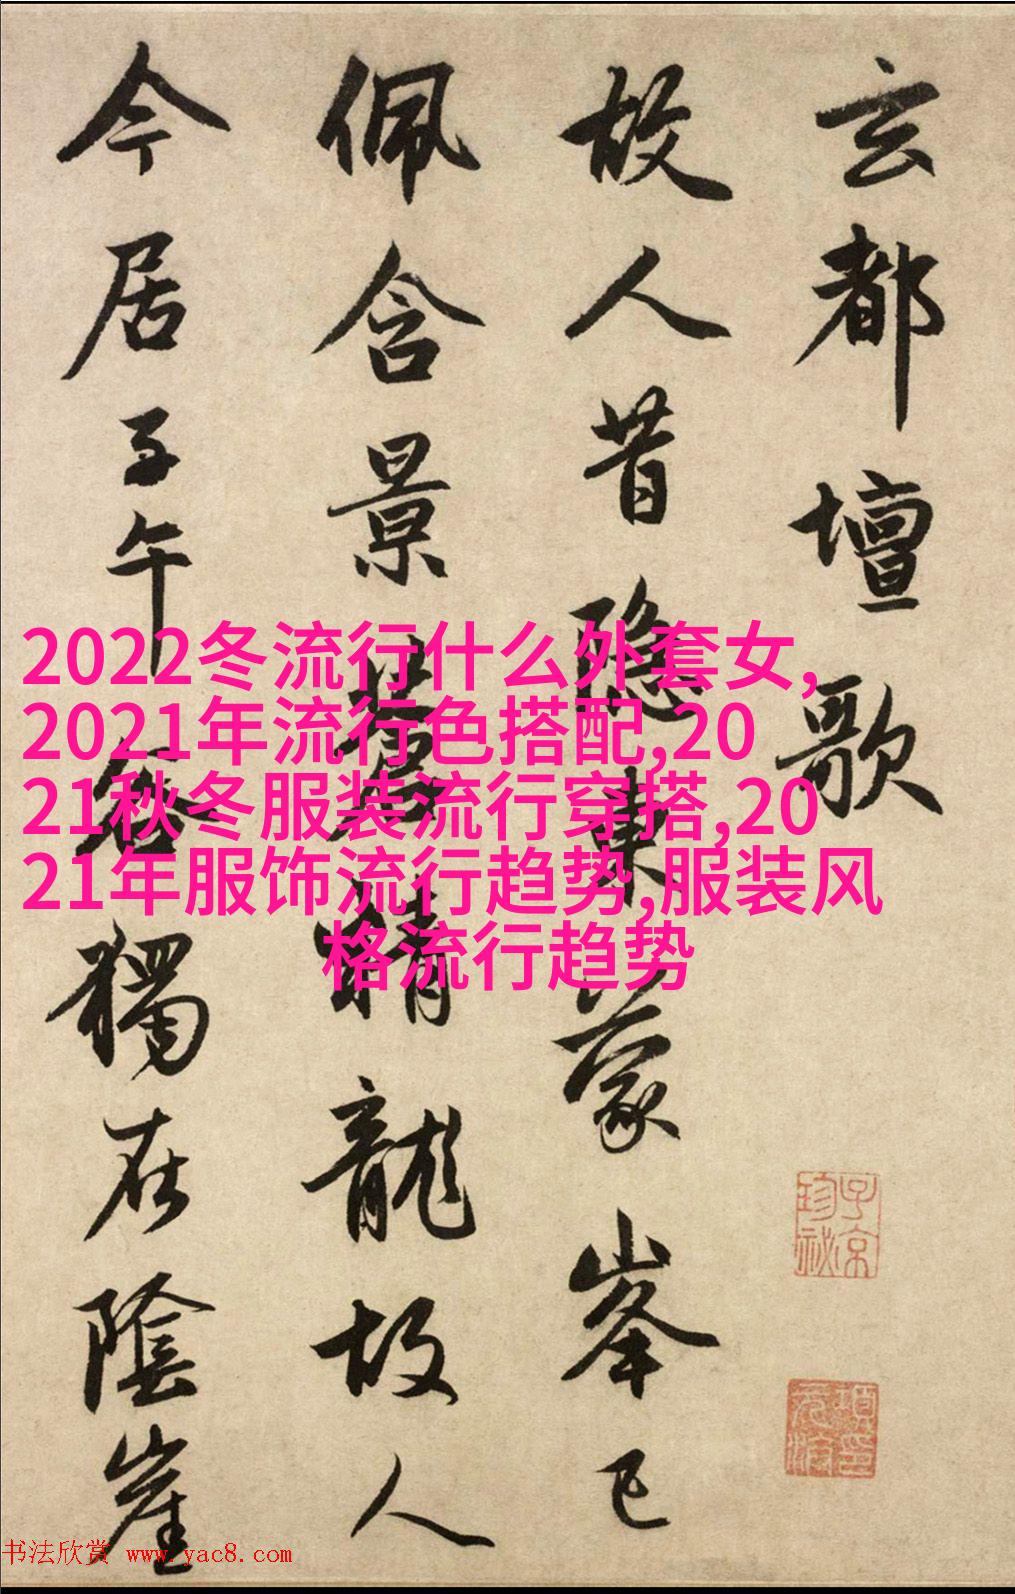 玄都壇歌
故人昔隐東蒙峯已
佩含景蒼精龍故人
今居子午谷獨在陰崖
2022冬流行什么外套女,
2021年流行色搭配,20
21秋冬服装流行穿搭,20
21年服饰流行趋势,服装风
格流行趋势
子京
珍祕
项元汴印
书法欣赏 www.yac8.com